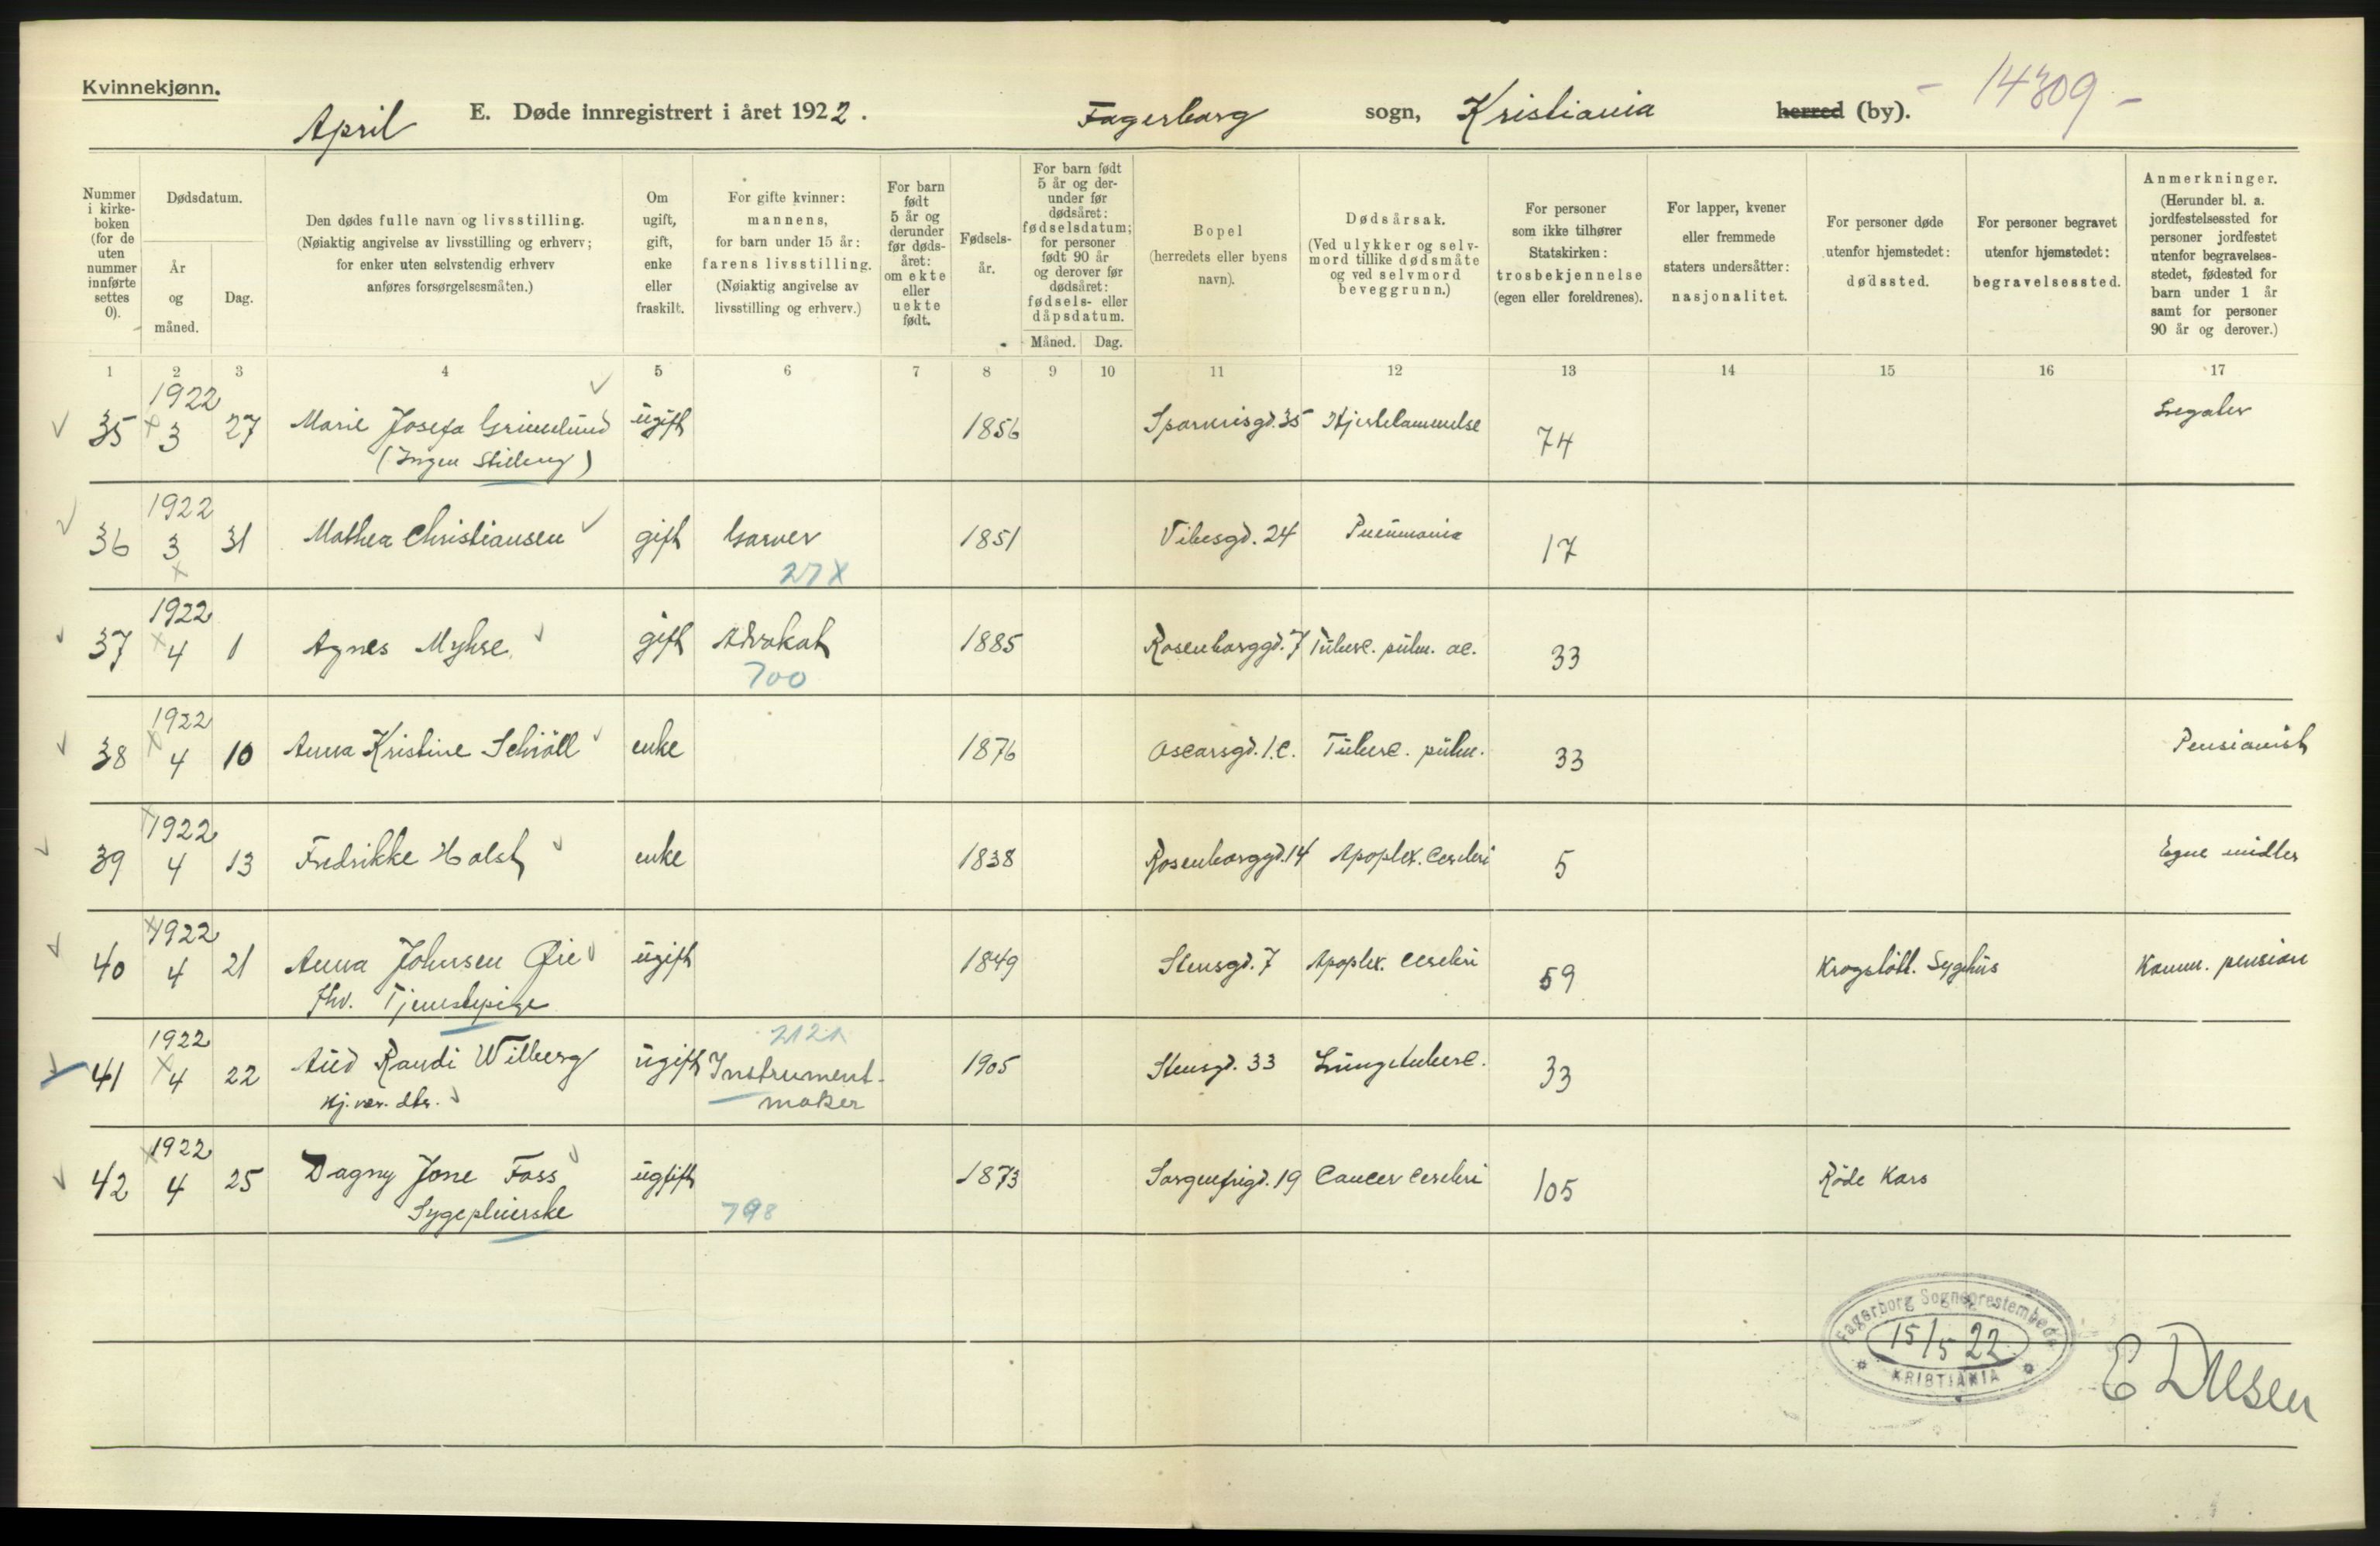 Kvinnekjønn.
April E. Døde innregistrert i året 1922. Fagerborg sogn, Kristiania herred (by). - 14309 -
Nummer i kirkeboken (for de uten nummer innførte settes 0).
Dødsdatum.
År og måned.
Dag.
Den dødes fulle navn og livsstilling.
(Nøiaktig angivelse av livsstilling og erhverv;
for enker uten selvstendig erhverv
anføres forsørgelsesmåten.)
Om ugift, gift, enke eller fraskilt.
For gifte kvinner:
mannens,
for barn under 15 år:
farens livsstilling.
(Nøiaktig angivelse av
livsstilling og erhverv.)
For barn født 5 år og derunder før dødsåret: om ekte eller uekte født.
Fødselsår.
For barn født 5 år og derunder før dødsåret: fødselsdatum; for personer født 90 år og derover før dødsåret: fødsels- eller dåpsdatum.
Måned. Dag.
Bopel
(herredets eller byens
navn).
Dødsårsak.
(Ved ulykker og selv-
mord tillike dødsmåte
og ved selvmord
beveggrunn.)
For personer
som ikke tilhører
Statskirken:
trosbekjennelse
(egen eller foreldrenes).
For lapper, kvener
eller fremmede
staters undersåtter:
nasjonalitet.
For personer døde
utenfor hjemstedet:
dødssted.
For personer begravet
utenfor hjemstedet:
begravelsessted.
Anmerkninger.
(Herunder bl. a.
jordfestelsessted for
personer jordfestet
utenfor begravelses-
stedet, fødested for
barn under 1 år
samt for personer
90 år og derover.)
1 2 3 4 5 6 7 8 9 10 11 12 13 14 15 16 17
1922
35 3 27 Marie Josefa Grimelund ugift 1856 Sporveisgd. 35 Hjertelammelse 74 Legater
(Ingen Stilling)
1922
36 3 31 Mathea Christiansen gift Garver 1851 Vibesgd. 24 Pneumonia 17
27 X
1922
37 4 1 Agnes Myhre gift Advokat 1885 Rosenborggd. 7 Tuberc. pulm. ac. 33
700
1922
38 4 10 Anna Kristine Schiöll enke 1876 Oscarsgd. 1.C. Tuberc. pulm. 33 Pensionist
1922
39 4 13 Fredrikke Holst enke 1838 Rosenborggd. 14 Apoplex. Cerebri 5 Egne midler
1922
40 4 21 Anna Johnsen Øie ugift 1849 Stensgd. 7 Apoplex. Cerebri 59 Krogstøtt. Sygehus Komm. pension
fhv. Tjenestepige
1922 2121
41 4 22 Aud Randi Wilberg ugift Instrument- 1905 Stensgd. 33 Lungetuberc. 33
Hj.vær. dtr. maker
1922
42 4 25 Dagny Jone Foss ugift 1873 Sorgenfrigd. 19 Cancer Cerebri 105 Røde Kors
Sygepleierske 798
Fagerborg Sogneprestembede
15/5 22
KRISTIANIA